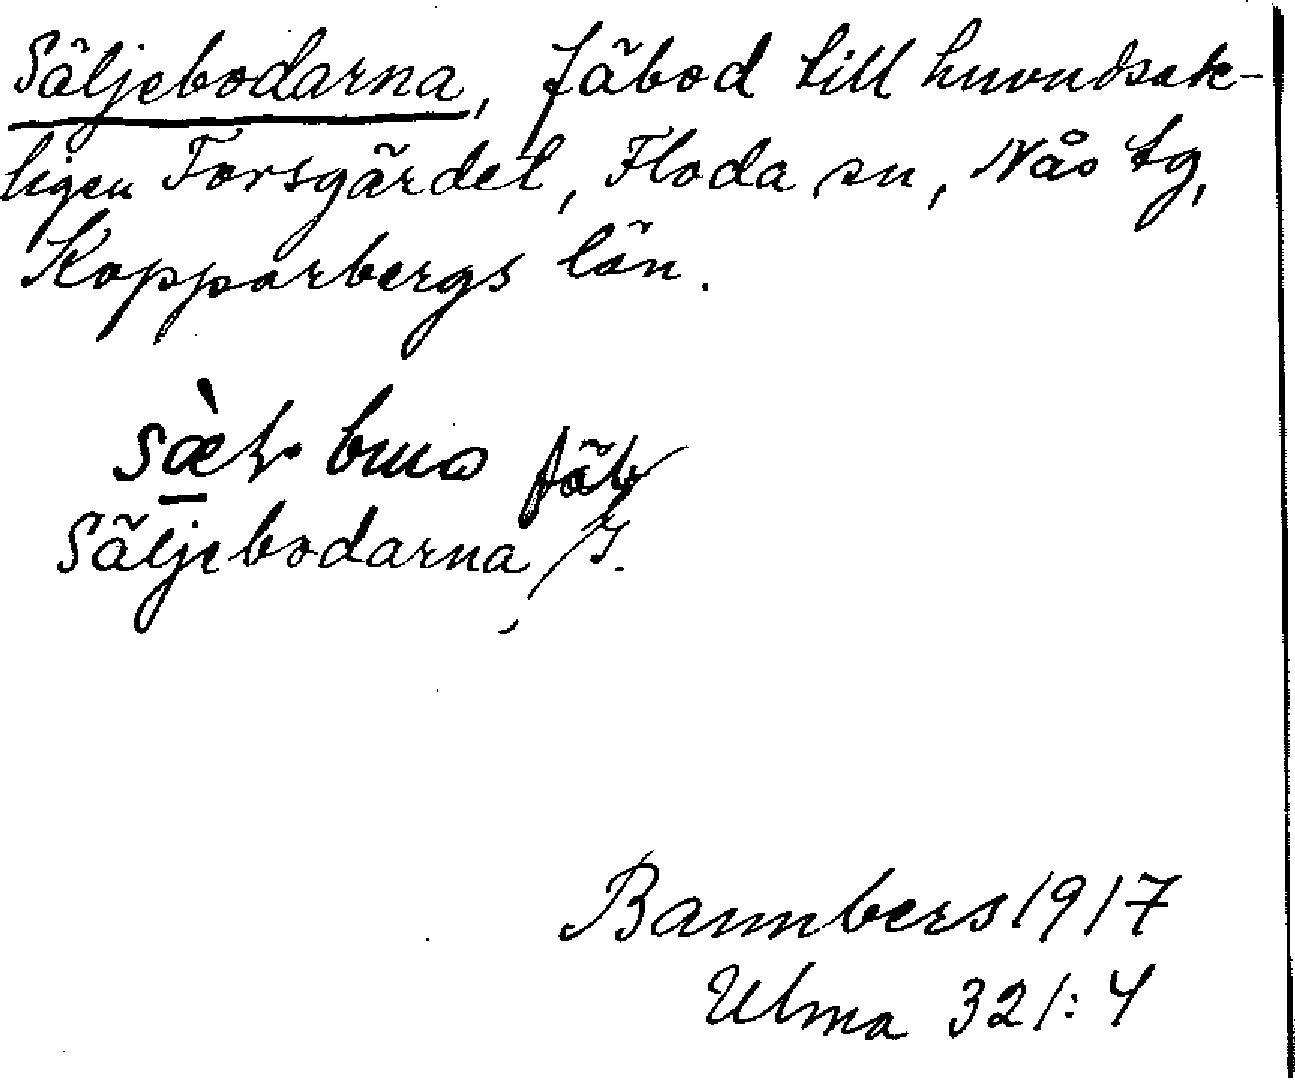 Säljebodarna, fäbod till huvudsak-
ligen Forsgärdet, Floda sn, Nås tg,
Kopparbergs län.
fäb
Säljebodarna, J.
Bannbers 1917
Ulma 321:4